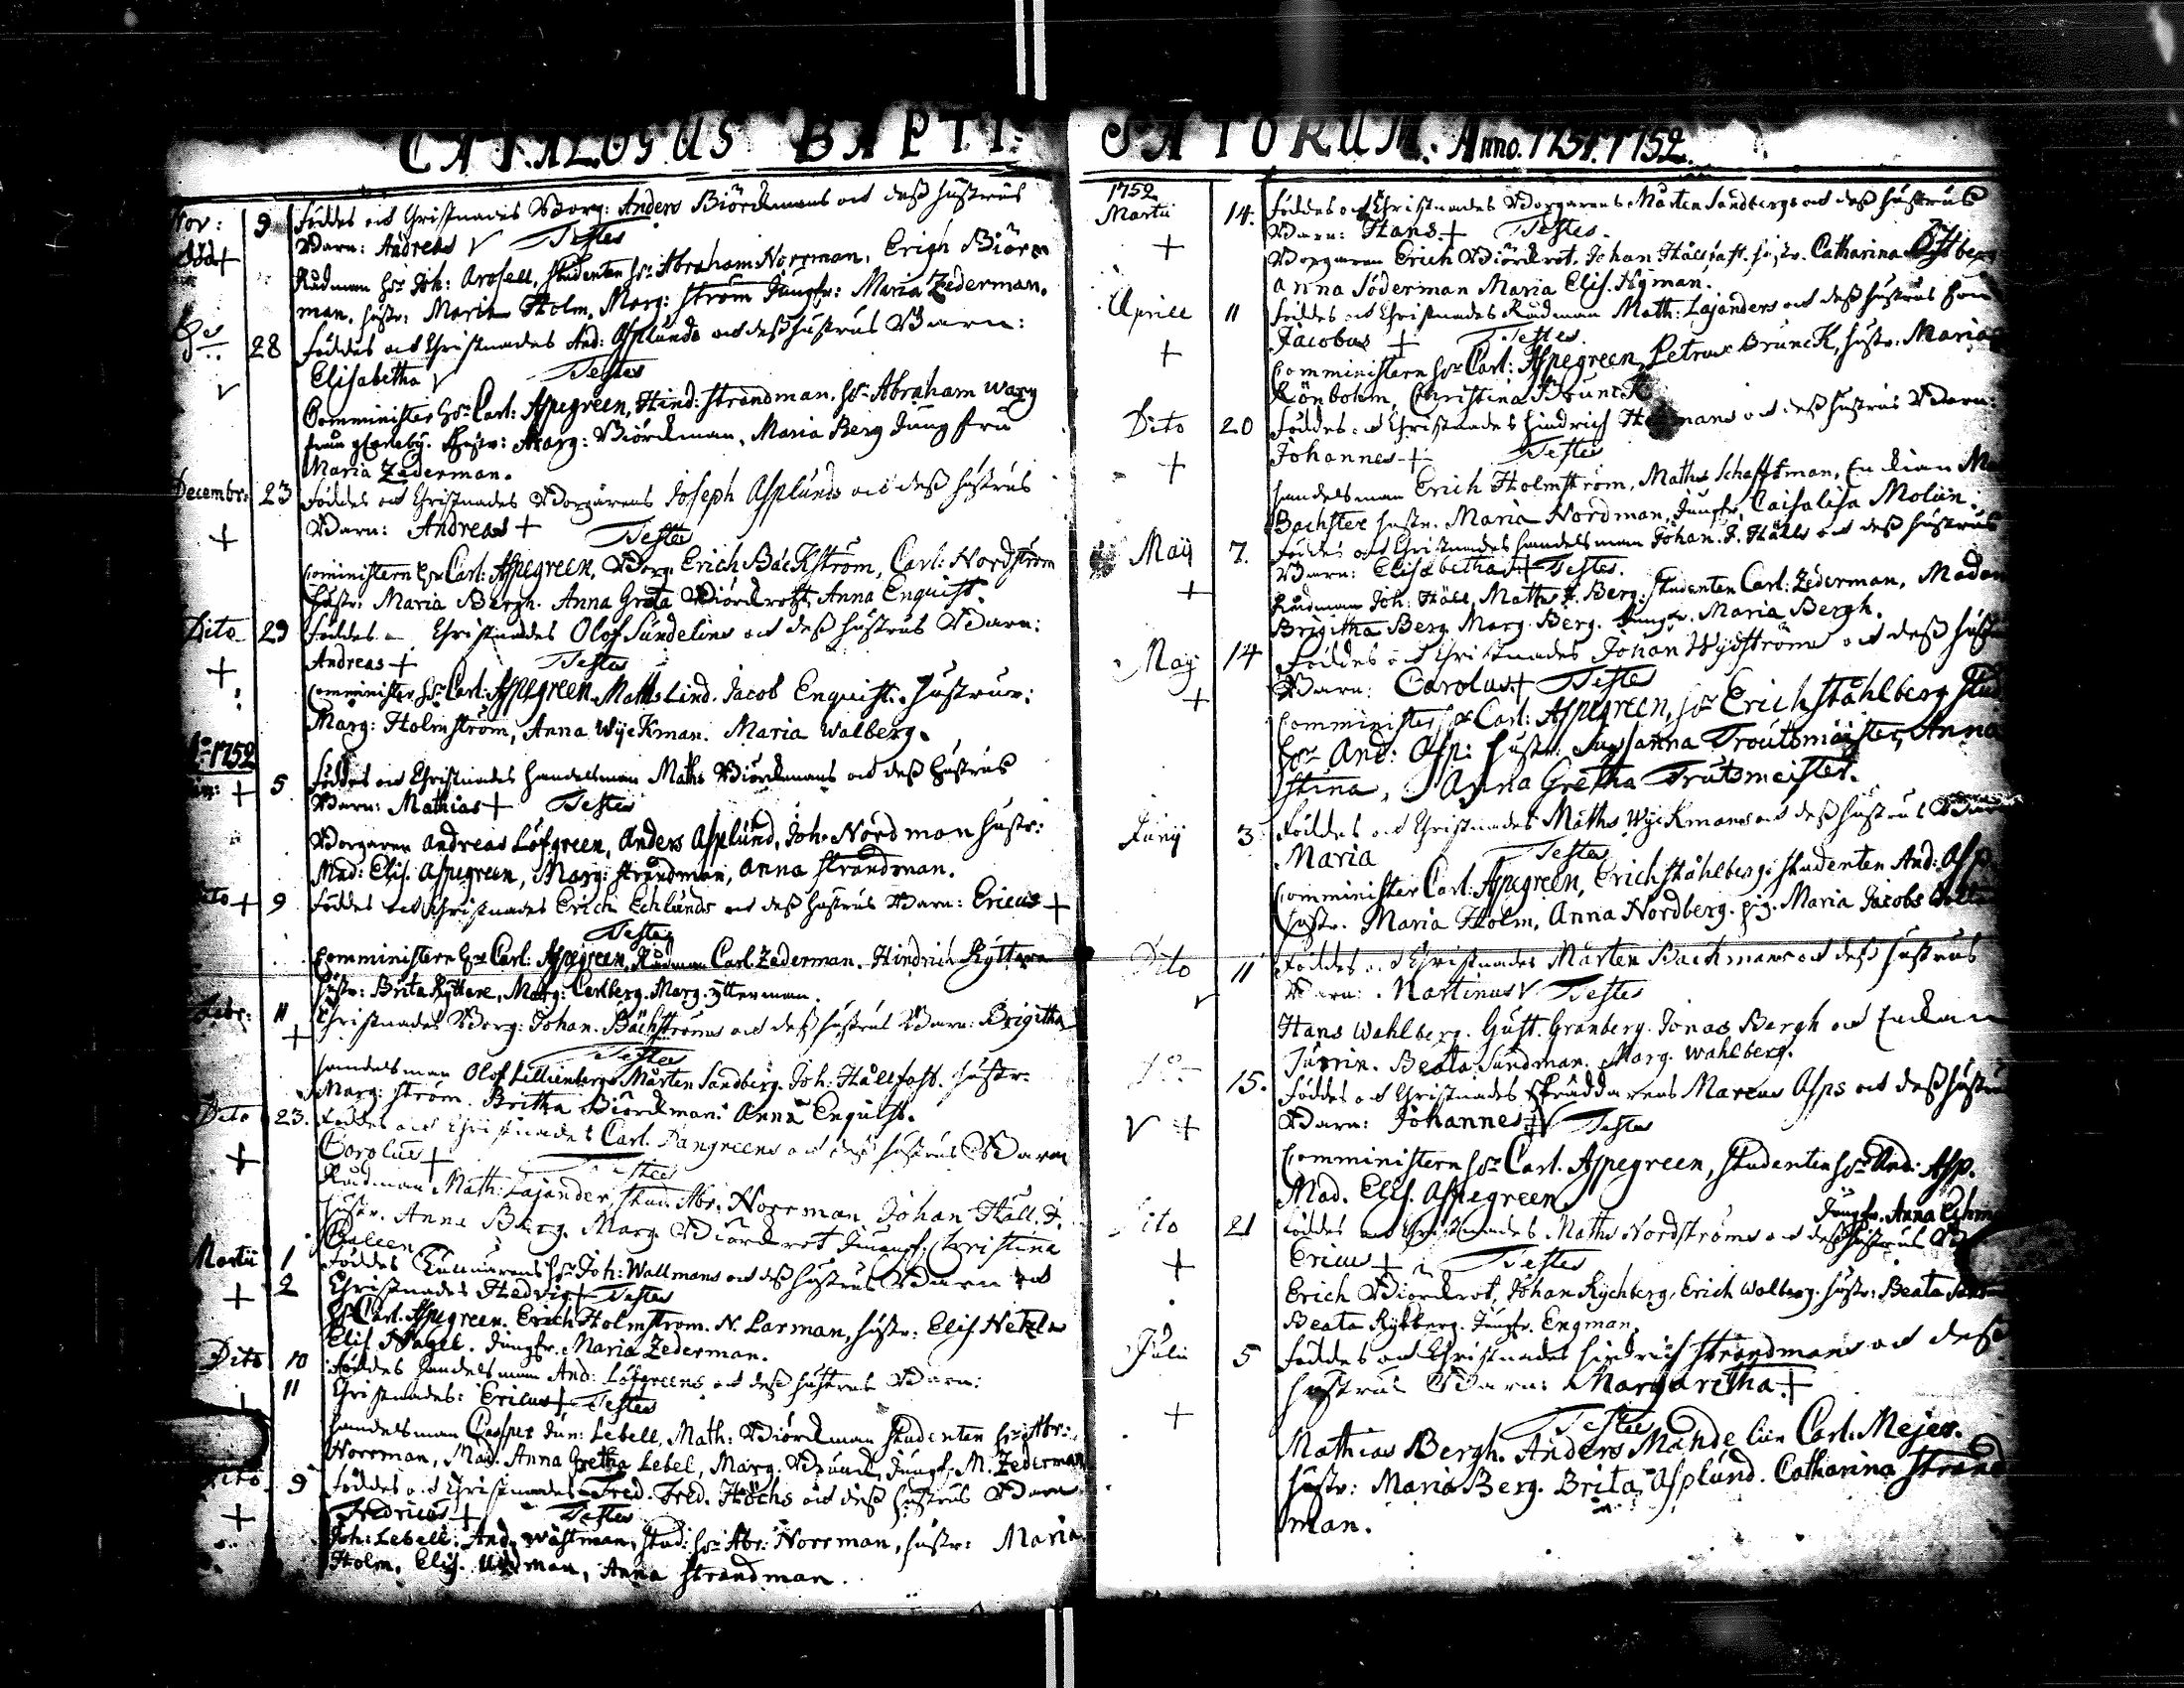 CATALOGUS BAPTI:
Nov: 9 föddes och Christnades Borg: Anders Biörckmans och dess hustrus
död + Barn: Andreas V Testes
Rådman Hr Joh: Arosell, Studenten Hr Abraham Norrman, Erich Biörn
man, hustr: Maria Holm, Marg: Ström Jungfr: Maria Zederman.
28 föddes och Christnades And: Asplunds och dess hustrus Barn:
V Elisabetha V Testes
Comminister Hr Carl: Aspegreen, Hind: Strandman, Hr Abraham Warg
från Hustr: Marg: Biörckman, Maria Berg Jungfru
Maria Zederman.
Decembr: 23 föddes och Christnades Borgarens Joseph Asplunds och dess hustrus
+ Barn: Andreas + Testes
Comministern Hr Carl: Aspegreen, Borg: Erich Bäckström, Carl: Nordström
hustr: Maria Bergh. Anna Greta Biörckrot, Anna Enquist.
Dito 29 föddes Christnades Olof Sundelins och dess hustrus Barn:
+ Andreas + Testes
Comminister Hr Carl: Aspegreen, Matts Lind. Jacob Enquist. hustrur:
Marg: Holmström, Anna Wyckman. Maria Walberg.
1752
+ 5 föddes och Christnades handelsman Maths Biörckmans och dess hustrus
Barn: Mathias + Testes
Borgaren Andreas Löfgreen, Anders Asplund, Joh: Nordman hustr:
Mad: Elis. Aspegreen, Marg: Strandman, Anna Strandman.
Dito + 9 föddes och Christnades Erich Echlunds och dess hustrus Barn: Ericus +
Testes
Comministern Hr Carl: Aspegreen, Rådman Carl Zederman. Hindrich Ryttare
hustr: Brita Ryttare, Marg: Carlberg. Marg. Ytterman.
Febr: 11 Christnades Borg: Johan Bächströms och dess hustrus Barn: Brigitha
+ Testes
handelsman Olof Lillienberg, Mårten Sandberg. Joh: Hällfast. hustr.
Marg: Ström. Britha Biörckman. Anna Enquist.
Dito 23. föddes och Christnades Carl. Dangreens och dess hustrus Barn
+ Carolus + Testes
Rådman Math: Lajander, Stud. Abr. Norrman, Johan Häll. J.
hustr. Anna Berg. Marg. Biörckrot Jungf. Christina
Caleen
Martii 1 föddes Hr Joh: Wallmans och dess hustrus Barn och
+ 2 Christnades Hedvig + Testes
Hr Carl. Aspegreen. Erich Holmström. N. Larman, hustr: Elis. Netzla
Elis. Nagel. Jungfr. Maria Zederman.
Dito 10 föddes handelsman And: Löfgreens och dess hustrus Barn:
+ 11 Christnades: Ericus + Testes
handelsman Casper Jun: Lebell, Math: Biörckman Studenten Hr Abr:
Norrman, Mad. Anna Gretha Lebel, Marg. Brunck, Jungf. M. Zederman
Dito 9 föddes och Christnades Fred. Fred. Höchs och dess hustrus Barn
+ Fredricus + Testes
Joh: Lebell. And. Wästman, Stud: Hr Abr: Norrman, hustr: Maria
Holm, Elis. Anna Strandman.
SATORUM. Anno. 1751. 1752.
1752
Martii 14. föddes och Christnades Borgarens Mårten Sandbergs och dess hustrus
+ Barn: Hans. + Testes.
Borgaren Erich Biörckrot, Johan Hällfast. hustr. Catharina Östberg
Anna Söderman Maria Elis. Hyman.
Aprill 11 föddes och Christnades Rådman Math: Lajanders och dess hustrus
+ Jacobus + Testes
Comministern Hr Carl: Aspegreen, Petrus Brunck, hustr. Maria
Rönbohm, Christina Brunck
Dito 20 föddes och Christnades Hindrich och dess hustrus Barn:
+ Johannes + Testes
handelsman Erich Holmström, Maths Schafftman, Enckian
Bachster hustr. Maria Nordman, Jungfr. Caisalisa Molin.
Maij 7. föddes och Christnades handelsman Johan. J. Hälls och dess hustrus
+ Barn: Elisabetha + Testes.
Rådman Joh: Häll, Matths J. Berg. Studenten Carl: Zederman, Madam
Brigitha Berg. Marg. Berg. Jungfr. Maria Bergh.
Maij 14 föddes och Christnades Johan Wydströms och dess hustru
+ Barn: Carolus + Testes
Comminister Hr Carl: Aspegreen, Hr Erich Ståhlberg Stud
Hr And: Asp: hustr: Susanna Troutsmäister, Anna
Stina, Anna Gretha Trutsmeister.
Junij 3 föddes och Christnades Maths Wyckmans och dess hustrus Barn
Maria Testes
Comminister Carl: Aspegreen, Erich Ståhlberg. Studenten And: Asp
hustr. Maria Holm, Anna Nordberg. pig. Maria Jacobs
Dito 11 föddes och Christnades Mårten Bachmans och dess hustrus
V Barn: Martinus V Testes
Hans Wahlberg. Gust. Granberg. Jonas Bergh och Enckian
Beata Sundman. Marg. Wahlberg.
15. föddes och Christnades Skräddarens Marcus Asps och dess hustru
V + Barn: Johannes + V Testes
Comministern Hr Carl. Aspegreen, Studenten Hr And: Asp.
Mad. Elis. Aspegreen Jungfr. Anna
Dito 21 föddes och Christnades Maths Nordströms och dess hustrus
+ Ericus + Testes
Erich Biörckrot, Johan Rychberg, Erich Walberg. hustr: Beata
Beata Ryckberg. Jungfr. Engman.
Julii 5 föddes och Christnades Hindrich Strandmans och dess
+ hustrus Barn: Margaritha. +
Testes
Mathias Bergh. Anders Mandelin Carl. Mejer.
hustr: Maria Berg. Brita Asplund. Catharina Strand
man.